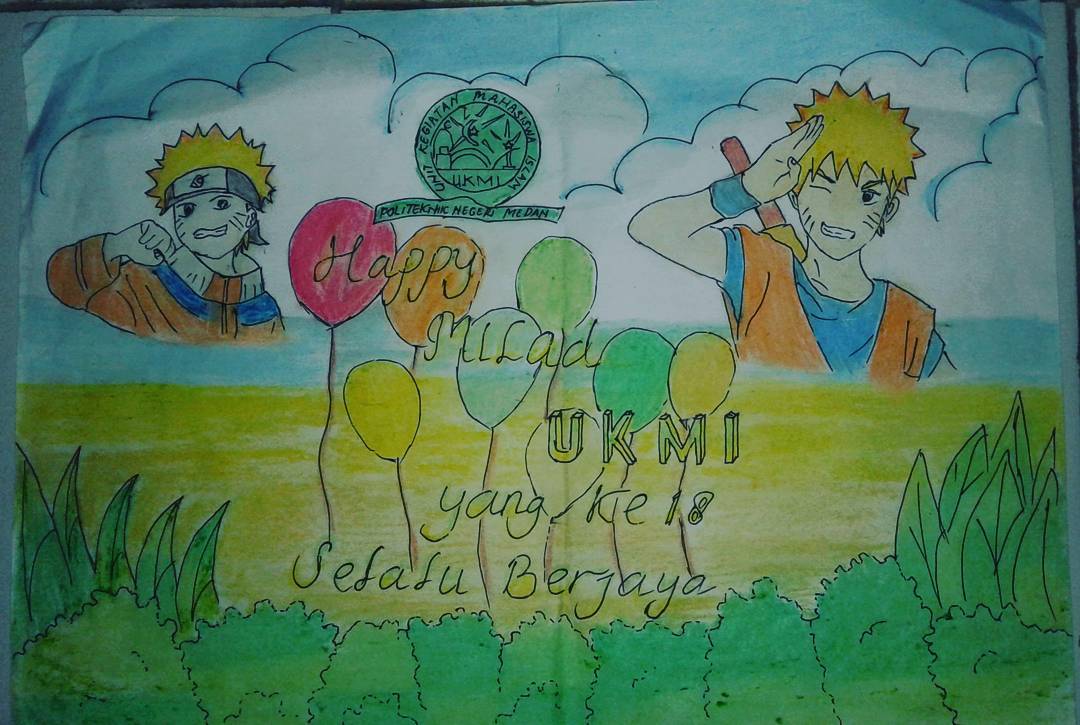 UNIT KEGIATAN MAHASISWA ISLAM
UKMI
POLITEKNIK NEGERI MEDAN
Happy
MILad
UKMI
yang Ke 18
Selalu Berjaya